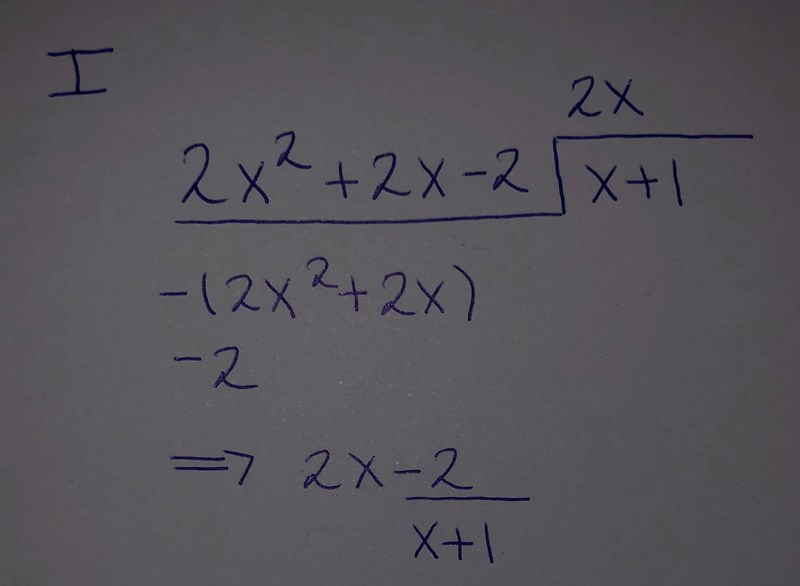 I
2x
2x² + 2x - 2 x + 1
-(2x² + 2x)
-2
⇒ 2x - 2
x + 1